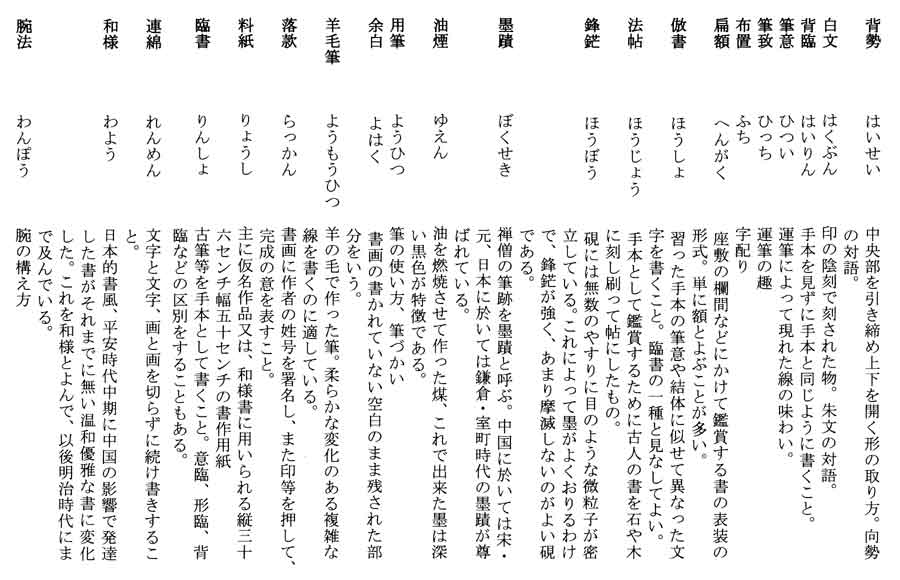 背勢 はいせい 中央部を引き締め上下を開く形の取り方。向勢
の対語。
白文 はくぶん 印の陰刻で刻された物。朱文の対語。
背臨 はいりん 手本を見ずに手本と同じように書くこと。
筆意 ひつい 運筆によって現れた線の味わい。
筆致 ひっち 運筆の趣
布置 ふち 字配り
扁額 へんがく 座敷の欄間などにかけて鑑賞する書の表装の
形式。単に額とよぶことが多い。
倣書 ほうしょ 習った手本の筆意や結体に似せて異なった文
字を書くこと。臨書の一種と見なしてよい。
法帖 ほうじょう 手本として鑑賞するために古人の書を石や木
に刻し刷って帖にしたもの。
鋒鋩 ほうぼう 硯には無数のやすりに目のような微粒子が密
立している。これによって墨がよくおりるわけ
で、鋒鋩が強く、あまり摩滅しないのがよい硯
である。
墨蹟 ぼくせき 禅僧の筆跡を墨蹟と呼ぶ。中国に於いては宋・
元、日本に於いては鎌倉・室町時代の墨蹟が尊
ばれている。
油煙 ゆえん 油を燃焼させて作った煤、これで出来た墨は深
い黒色が特徴である。
用筆 ようひつ 筆の使い方、筆づかい
余白 よはく 書画の書かれていない空白のまま残された部
分をいう。
羊毛筆 ようもうひつ 羊の毛で作った筆。柔らかな変化のある複雑な
線を書くのに適している。
落款 らっかん 書画に作者の姓号を署名し、また印等を押して、
完成の意を表すこと。
料紙 りょうし 主に仮名作品又は、和様書に用いられる縦三十
六センチ幅五十センチの書作用紙
臨書 りんしょ 古筆等を手本として書くこと。意臨、形臨、背
臨などの区別をすることもある。
連綿 れんめん 文字と文字、画と画を切らずに続け書きするこ
と。
和様 わよう 日本的書風、平安時代中期に中国の影響で発達
した書がそれまでに無い温和優雅な書に変化
した。これを和様とよんで、以後明治時代にま
で及んでいる。
腕法 わんぽう 腕の構え方